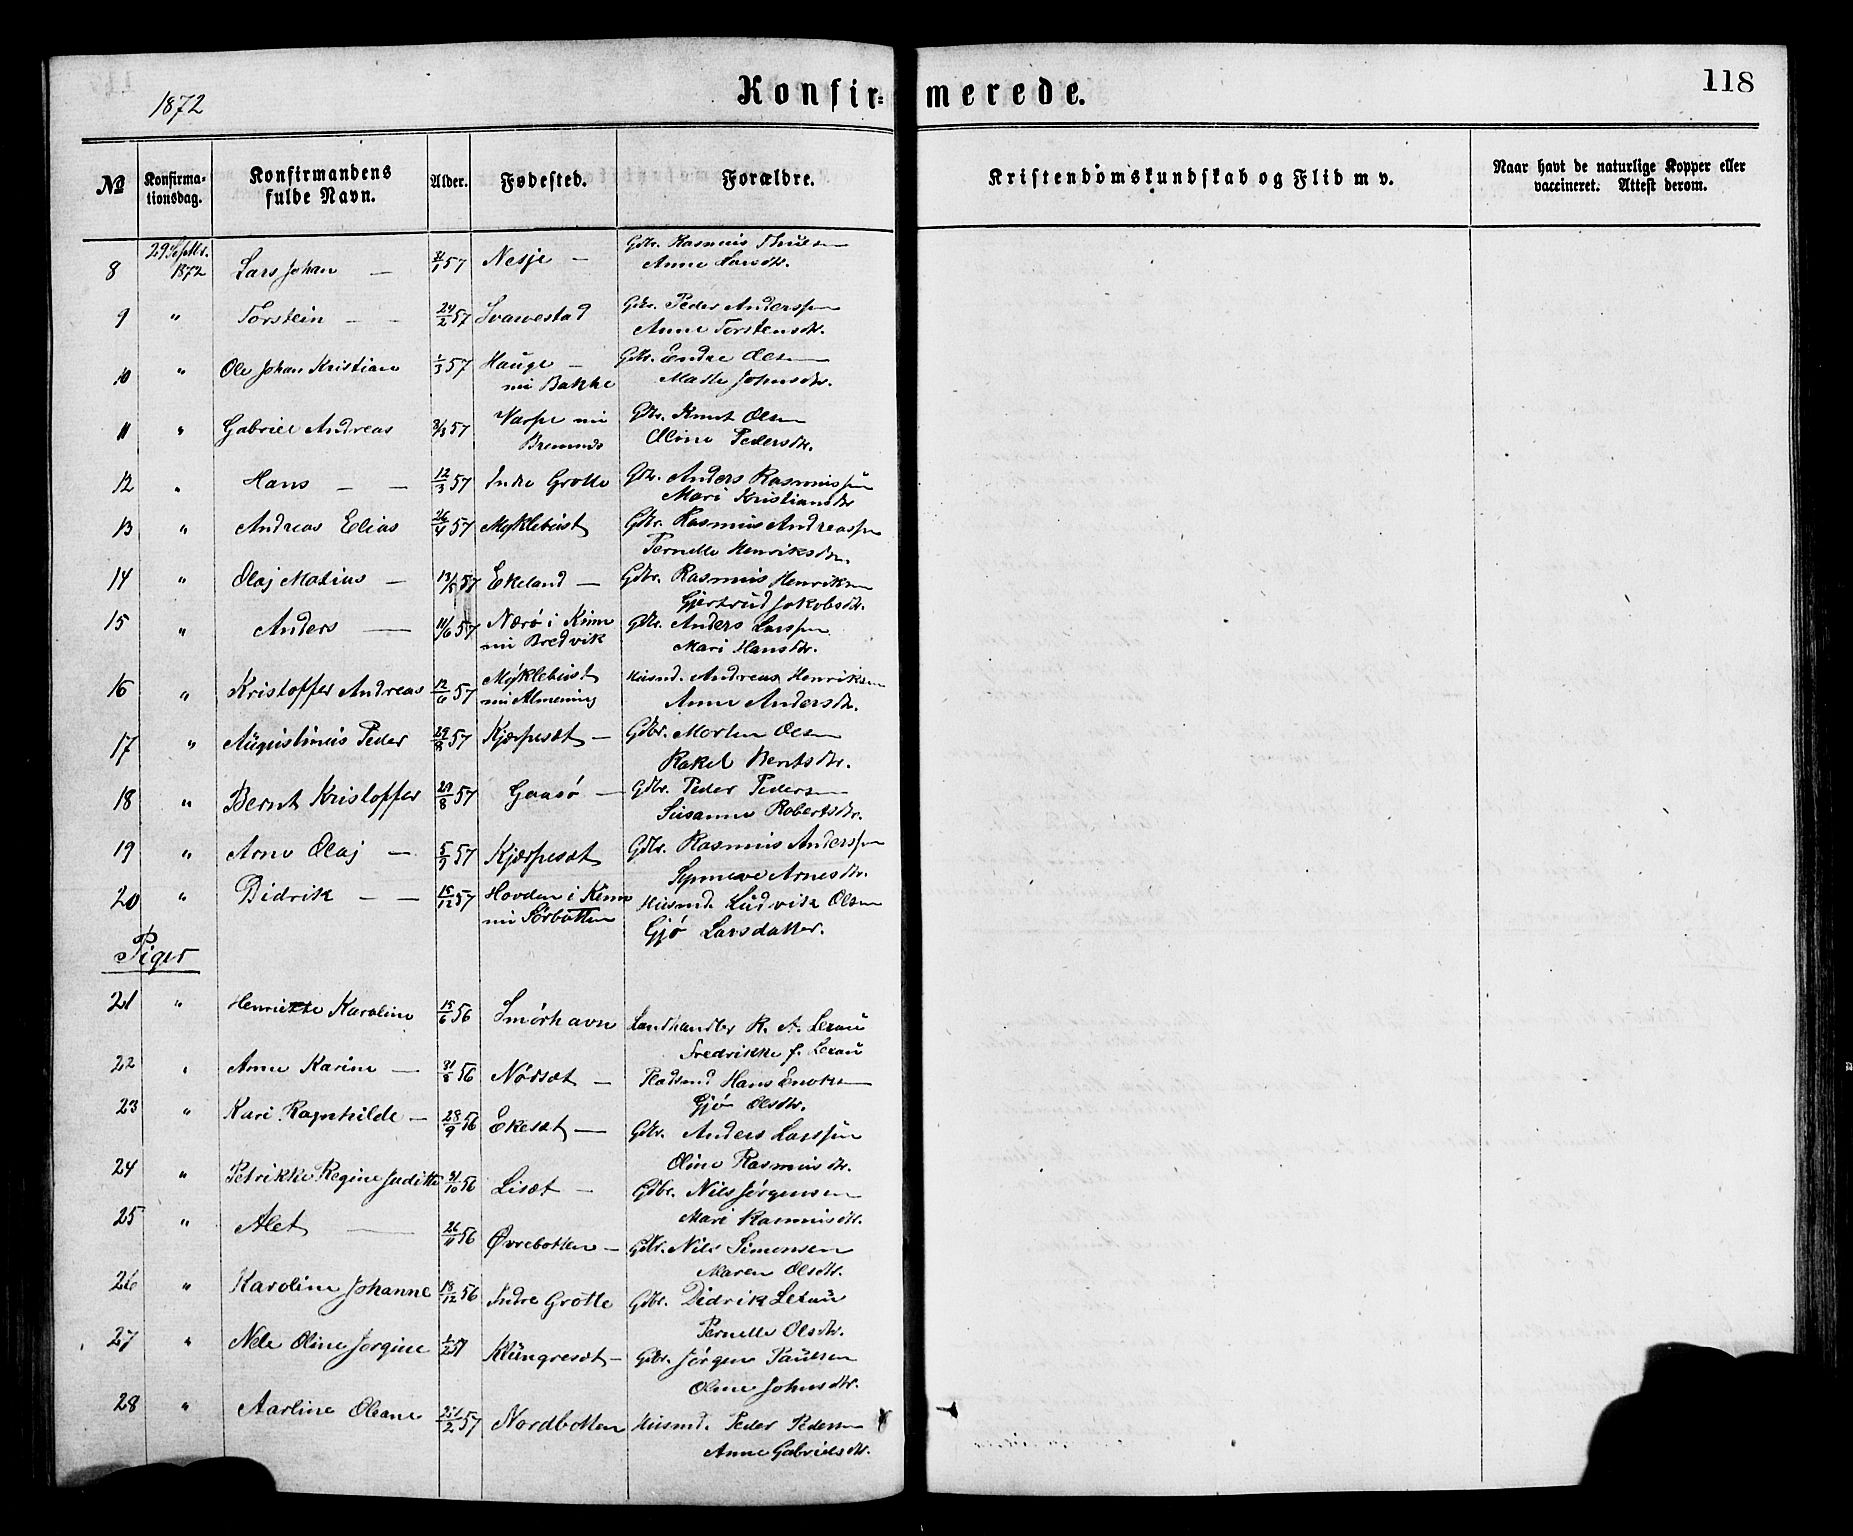 1872
Konfir=merede.
118
No
Konfirma-
tionsdag.
Konfirmandens
fulde Navn.
Alder.
Fødested.
Forældre.
Kristendomskundskab og Flid m v.
Naar havt de naturlige Kopper eller
vaccineret. Attest derom.
8 29 Septbr. 1872 Lars Johan — 57 Nesje — Gdbr. Rasmus
Anne Larsdtr.
9 " Torstein — — 24/2 57 Svarvestad Gdbr. Peder Anderssen
Anne Torstensdtr.
10 " Ole Johan Kristian 1/3 57 Hauge — Gdbr. Endre Olsen
nu Bakke Johnsdtr.
11 " Gabriel Andreas 57 Varpe nu Gdbr. Knut Olsen
Oline Pedersdtr.
12 " Hans — — 12/3 57 Indre Grotle Gdbr. Anders Rasmussen
Mari Kristiansdtr
13 " Andreas Elias 26/4 57 Myklebust Gdbr. Rasmus Andreassen
Pernelle Henriksdtr.
14 " Olaj Matius — 13/5 57 Ekeland — Gdbr. Rasmus Henriksen
Gjertrud Jakobsdtr.
15 " Anders — 11/6 57 Nærø i Kinn Gdbr. Anders Larssen
nu Bredvik Mari Hansdtr.
16 " Kristoffer Andreas 12/6 57 Myklebust Husmd. Andreas Henriksen
nu Almenning Anne Andersdtr.
17 " Augustinus Peder 29/8 57 Kjærpesæt — Gdbr. Morten Olsen
Rakel Berntsdtr.
18 " Bernt Kristoffer 29/8 57 Gaasø — Gdbr. Peder Pedersen
Susanne Robertsdtr.
19 " Arne Olaj — 5/9 57 Kjærpesæt Gdbr. Rasmus Anderssen
Synneve Arnesdtr.
20 " Didrik — — 15/12 57 Hovden i Kinn Husmd. Ludvik Olsen
nu Sørbotten Gjø Larsdatter.
Piger
21 " Henriette Karoline 15/6 56 Smørhavn Landhandler R. A. Lexau
Fredrikke f. Lexau
22 " Anne Karine — 31/8 56 Nødsæt — Pladsmd Hans Enoksen
Gjø Olsdtr.
23 " Kari Ragnhilde — 28/9 56 Ekesæt — Gdbr. Anders Larssen
Oline Rasmusdtr.
24 " Petrikke Regine Juditte 31/10 56 Lisæt — Gdbr. Nils Jørgensen
Mari Rasmusdtr.
25 " Alet — 26/11 56 Øvrebotten — Gdbr. Nils Simonsen
Maren Olsdtr.
26 " Karoline Johanne 18/12 56 Indre Grotle Gdbr. Didrik Lexau
Pernelle Olsdtr.
27 " Nele Oline Jørgine 1/2 57 Klungresæt — Gdbr. Jørgen Paulsen
Oline Johnsdtr.
28 " Aarline Oleane 57 Nordbotten Husmd. Peder Pedersen
Anne Gabrielsdtr.